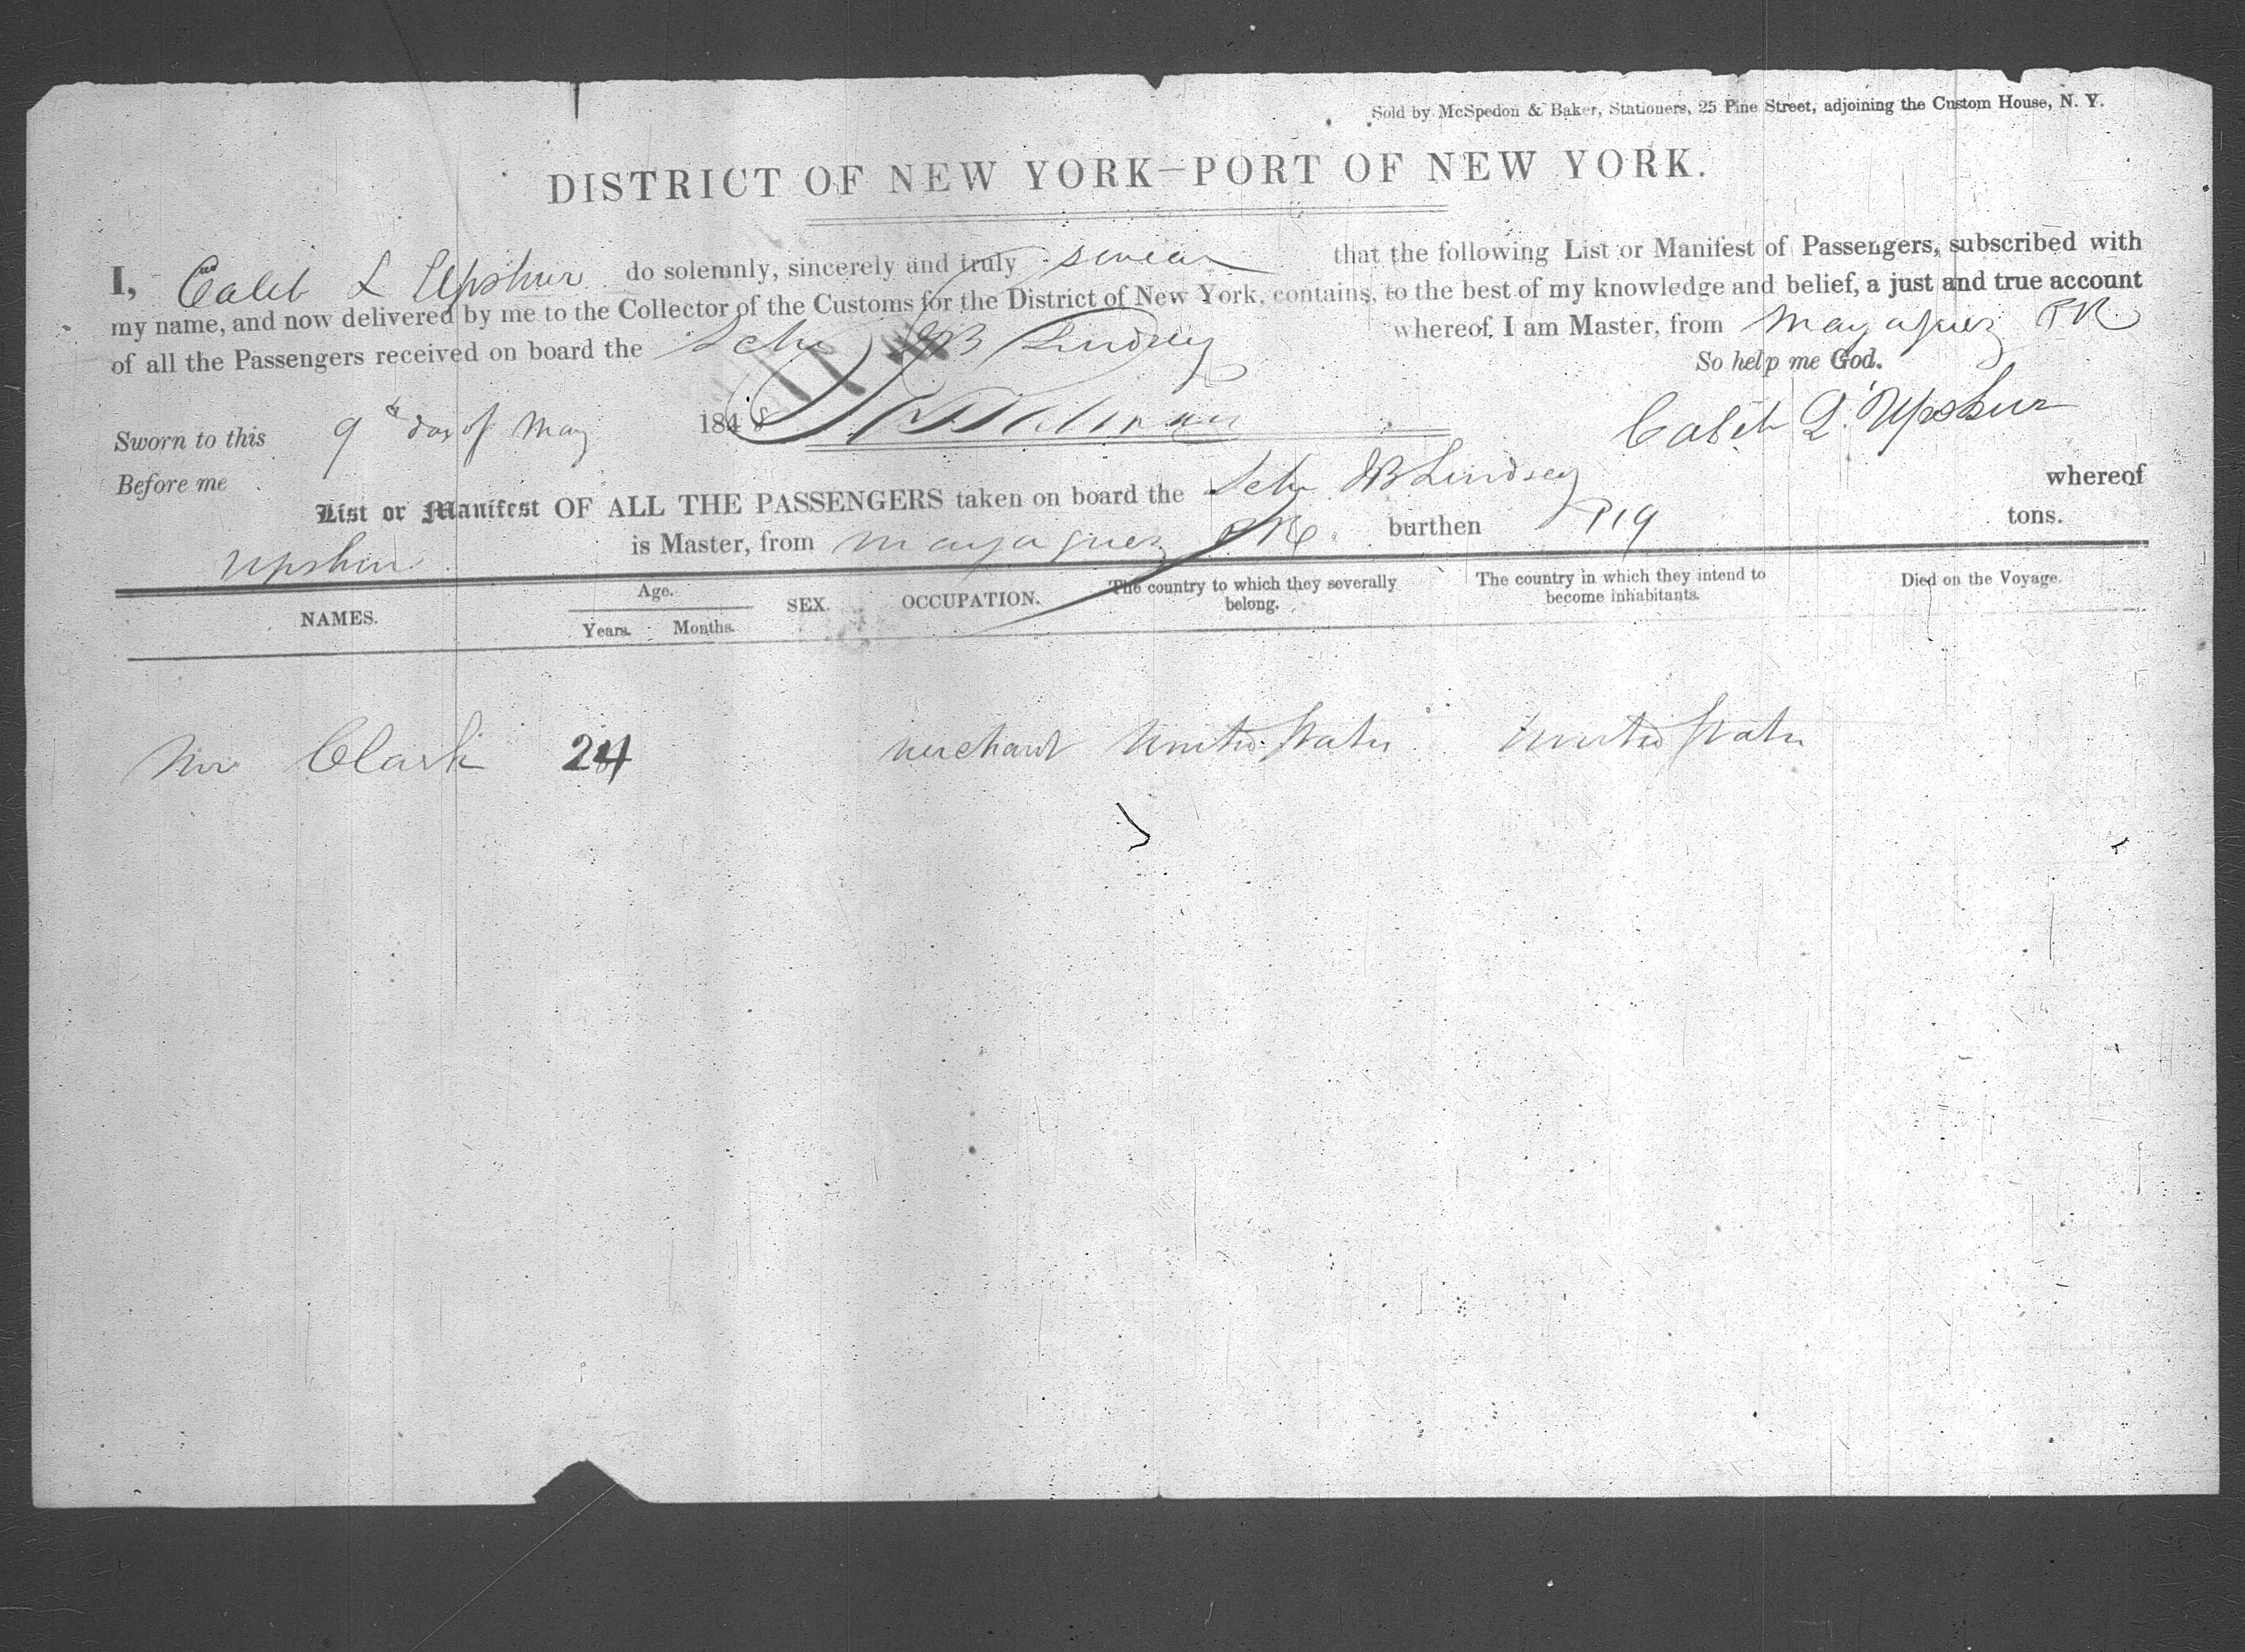 Sold by McSpedon & Baker, Stationers, 25 Pine Street, adjoining the Custom House, N. Y.
DISTRICT OF NEW YORK—PORT OF NEW YORK.
I, Caleb L Upshur do solemnly, sincerely and truly swear that the following List or Manifest of Passengers, subscribed with
my name, and now delivered by me to the Collector of the Customs for the District of New York, contains, to the best of my knowledge and belief, a just and true account
of all the Passengers received on board the Schr JB Lindsey whereof I am Master, from Mayaguez PR
So help me God.
Sworn to this 9th day of May 1848 Caleb L. Upshur
Before me
List or Manifest OF ALL THE PASSENGERS taken on board the Schr JB Lindsey whereof
Upshur is Master, from Mayaguez PR burthen tons.
NAMES. Age. SEX. OCCUPATION. The country to which they severally belong. The country in which they intend to become inhabitants. Died on the Voyage.
Years. Months.
Clark 24 merchant United States United States